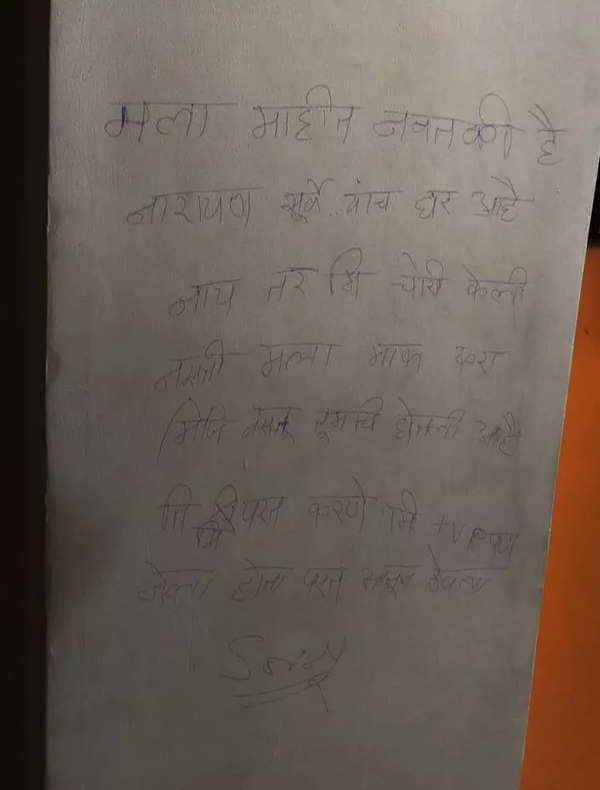 मला माहीत नवत की हे
नारायण सूर्वे यांच घर आहे
नाय तर मि चोरी केली
नसती मला माफ करा
मिजि वस्तू तूमचि घेतली आहे
ति मि परत करणे मि TV पण
नेला होता परत आणून ठेवला
Sorry